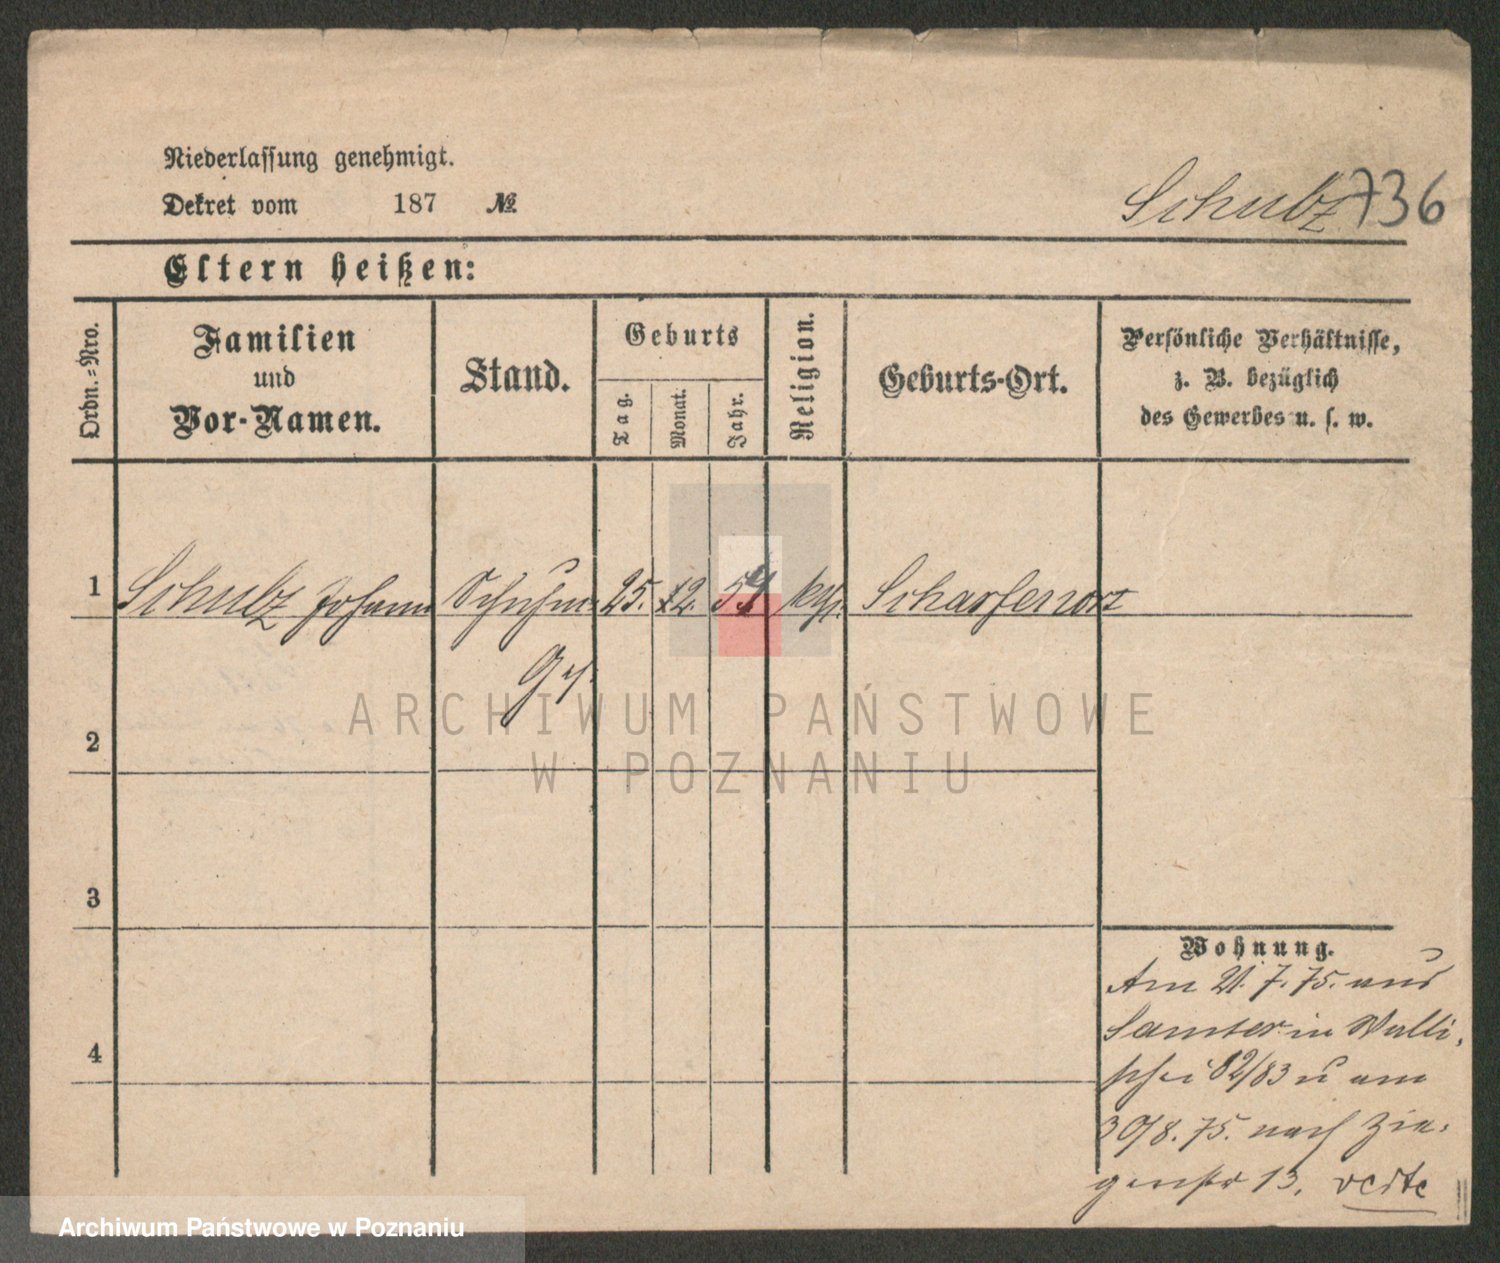 Niederlassung genehmigt.
Dekret vom 187 №
Schubz 736
Eltern heißen:
Ordn.=Nro.
Familien
und
Vor-Namen.
Stand.
Geburts
Tag.
Monat.
Jahr.
Religion.
Geburts-Ort.
Persönliche Verhältnisse,
z. B. bezüglich
des Gewerbes u. s. w.
1 Schubz Johann 25. 12. 54 Scharfenort
2
3
4
Wohnung.
Am 21. 7. 75. aus
Samter in Walli-
schei 82/83 u am
30/8. 75. nach Zie-
genstr 13. verte
ARCHIWUM PAŃSTWOWE
W POZNANIU
Archiwum Państwowe w Poznaniu